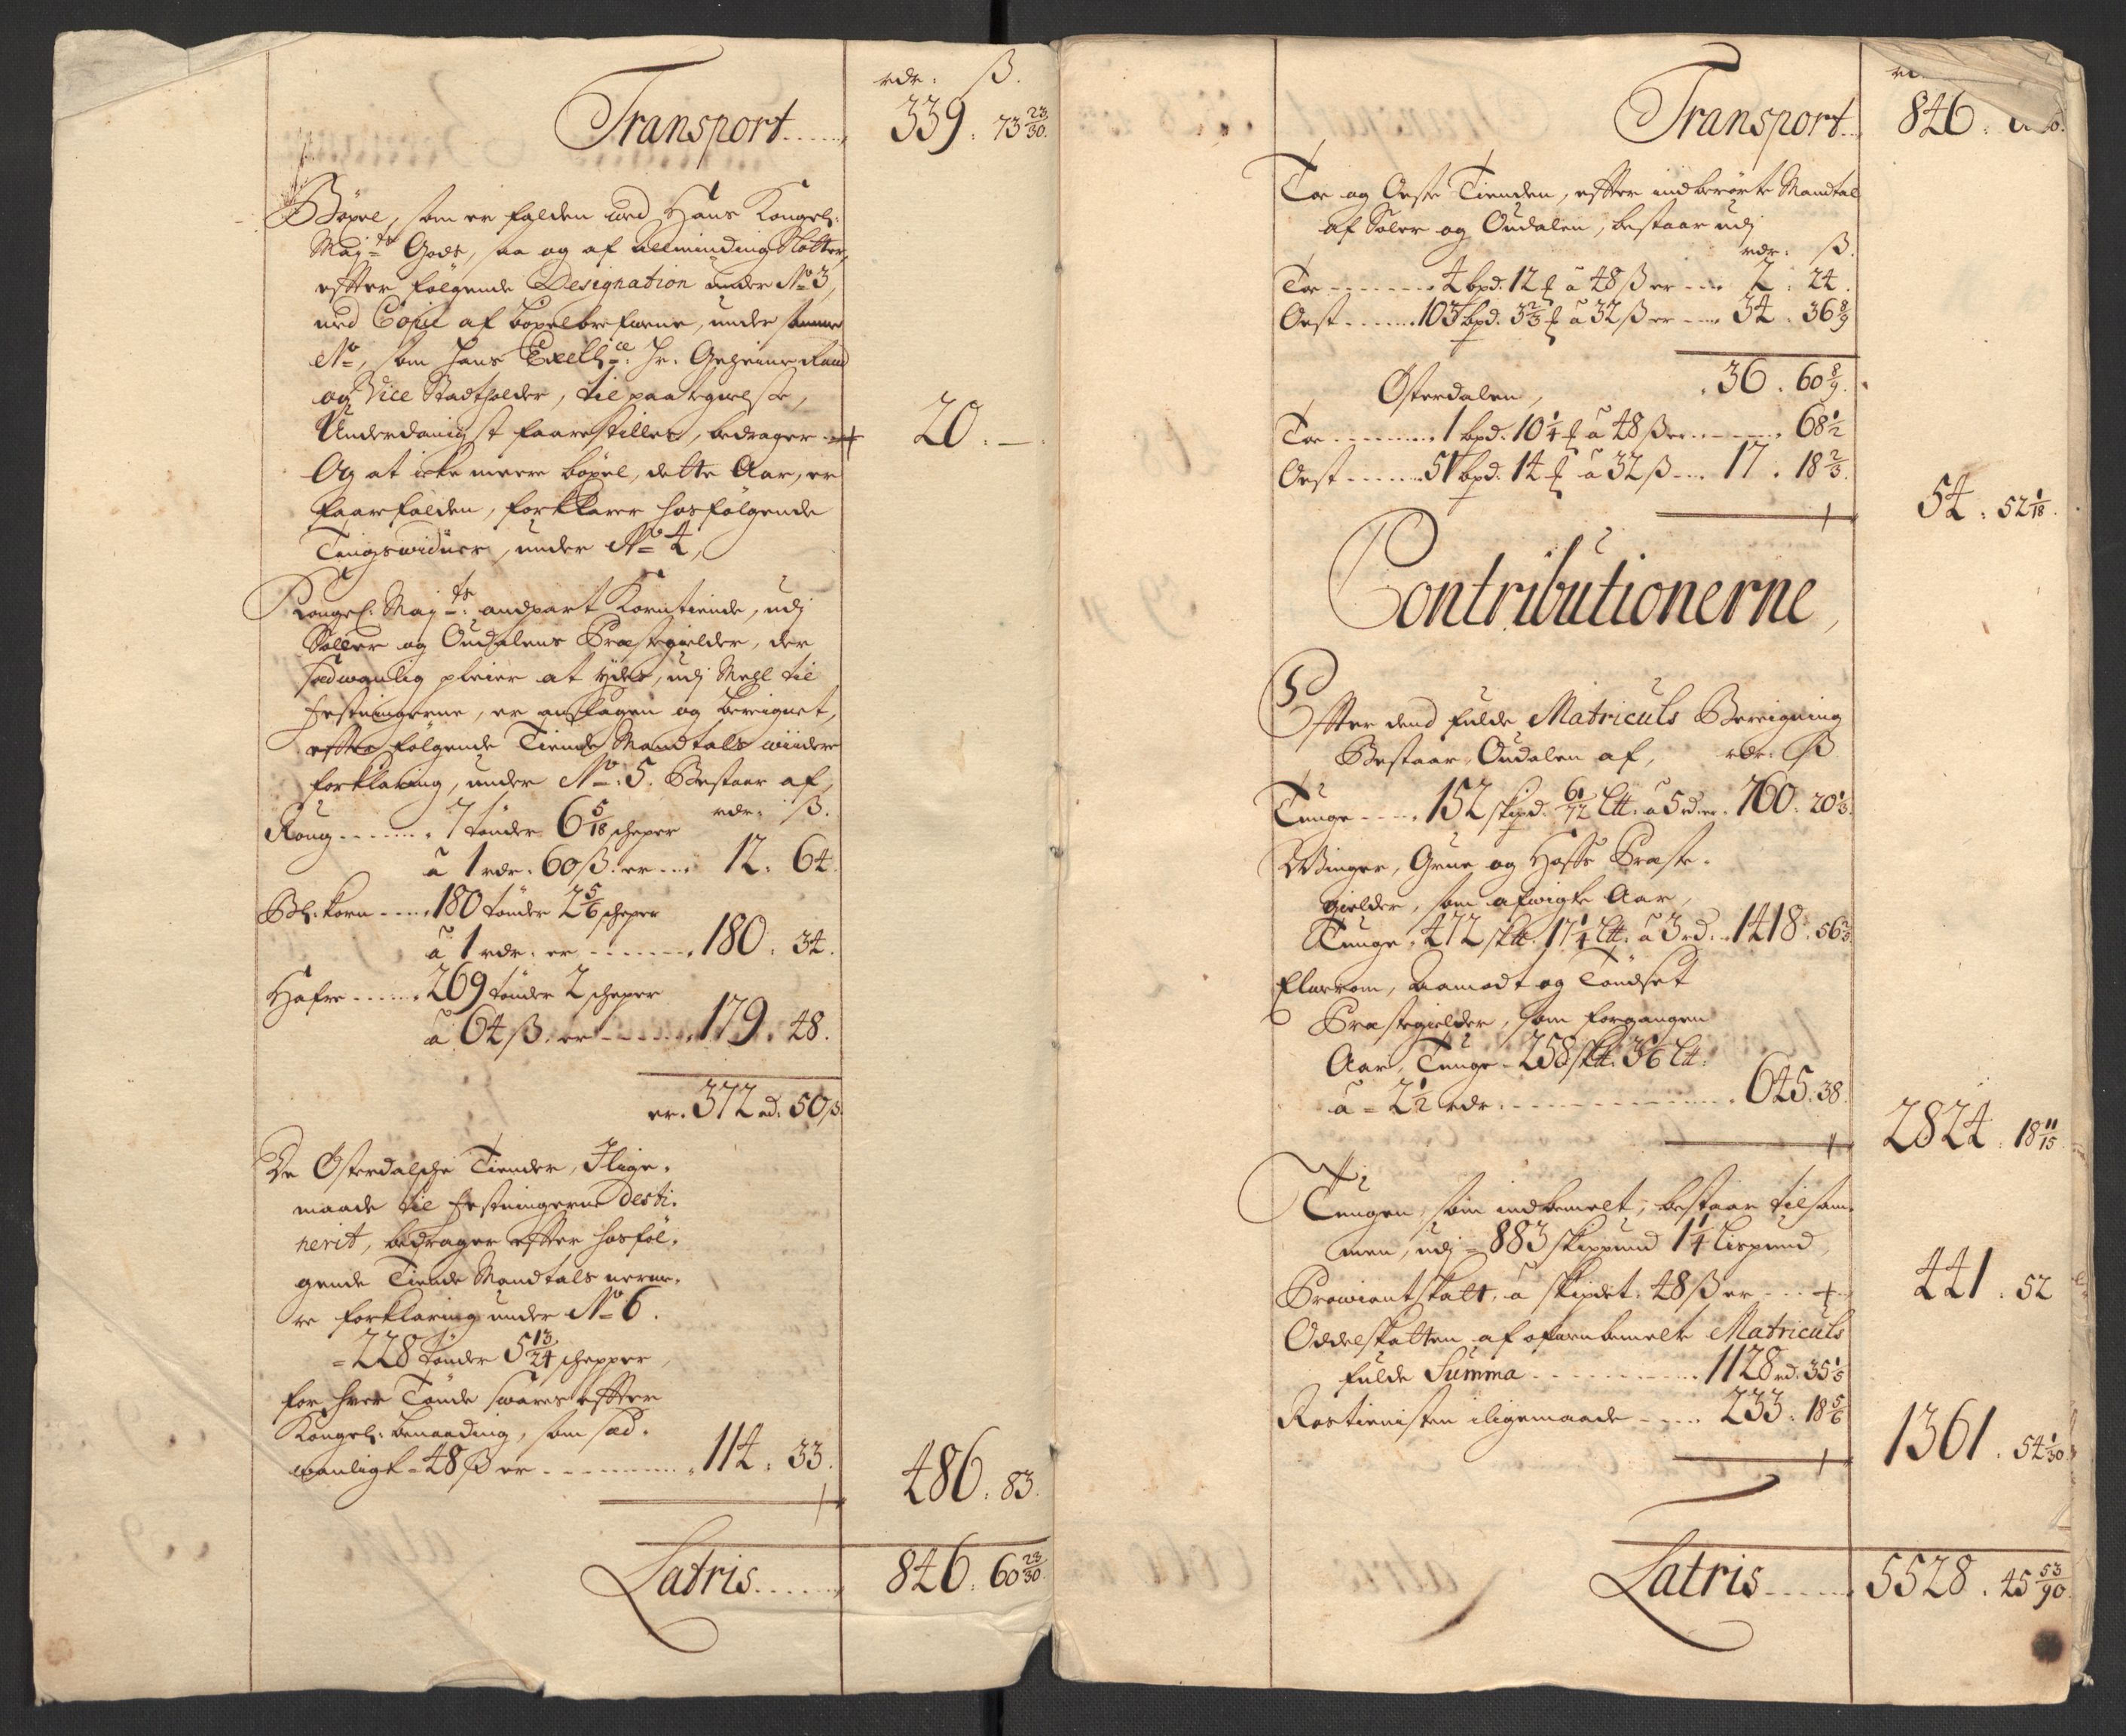 rdr: ß.
Transport...... 339. 73 23/30.
Böxel, som er falden wed Hans Kongel:
Maj:ts Gods, saa og af Allminding Slotter,
efter følgende Designation under No 3,
med Copie af Böxelbrefwene, under samme
No, som Hans Excell:ce Hr. Geheime Raad
og Vice Stadtholder, til paategnelse,
Underdanigst faarestilles, bedrager + 20. —.
Og at icke meere böxel, dette Aar, er
faarfalden, forklarer hosfölgende
Tingswidner, under No 4,
Kongel: Maj:ts andpart Korntiende, udj
Soller og Oudalens Præstegielder, der
sædwanlig pleier at ydes, udj Meel til
festningerne, er anslagen og bereignet,
efter følgende Tiende Mandtals widere
forklaring, under No: 5. Bestaar af,
rdr: ß.
Roug ...... 7 tönder 6 5/18 scheper
à 1 rdr. 60 ß. er ... 12. 64.
Bl: korn ..... 180 tönder 2 5/6 scheper
à 1 rdr: er ....... 180. 34.
Hafre ...... 269 tönder 2 scheper
à 64 ß. er ...... 179. 48.
er. 372 rd. 50 ß.
De Österdalsche Tiender, Ilige-
maade til festningerne desti-
nerit, bedrager efter hosföl-
gende Tiende Mandtals nerme-
re forklaring under No 6.
= 228 tönder 5 13/24 schepper,
for hver Tönde swares efter
Kongel: benaading, som sæd-
wanligt = 48 ß er .......... 114. 33.
+ 486. 83.
Latris ...... 846. 60 23/30.
Transport... 846.
Toe og Oste Tienden, efter indberörte Mandtal
af Soler og Oudalen, bestaar udj
rdr: ß.
Toe ......... 4 bpd. 12 à 48 ß er ... 2. 24.
Ost ....... 103 bpd. 3 2/3 à 32 ß er ... 34. 36 8/9
36. 60 8/9.
Österdalen,
Toe ......... 1 bpd. 10 1/4 à 48 ß er ....... 68 1/2
Ost ....... 51 bpd. 14 à 32 ß ... 17. 18 2/3.
+ 54. 52 1/18.
Contributionerne,
Efter dend fulde Matriculs Bereigning
Bestaar Oudalen af, rdr: ß
Tunge ..... 152 skpd. 61/72 Ltt. à 5 rd. er. 760. 20 1/3.
Winger, Grue og Hoffs Præste-
gielder, som afwigte Aar,
Tunge. 472 sktt. 17 1/4 Ltt. à 3 rd... 1418. 56 2/5
Elwerom, Aamodt og Tøndset
Præstegielder, som forgangen
Aar, Tunge = 258 sktt. 3 1/6 Ltt.
à = 2 1/2 rdr. ................ 645. 38.
+ 2824. 18 11/15.
Tungen, som indbemelt, bestaar tilsam-
men, udj = 883 skippund 1 1/4 Lispund
Prowiantskatt, à skipdt: 48 ß er ... + 441. 52
Oddelskatten af ofwenbemelte Matriculs
fulde Summa ........... 1128 rd. 35 1/5
Rostienisten iligemaade ..... 233. 18 5/6
+ 1361. 54 1/30.
Latris ...... 5528. 45 53/90.